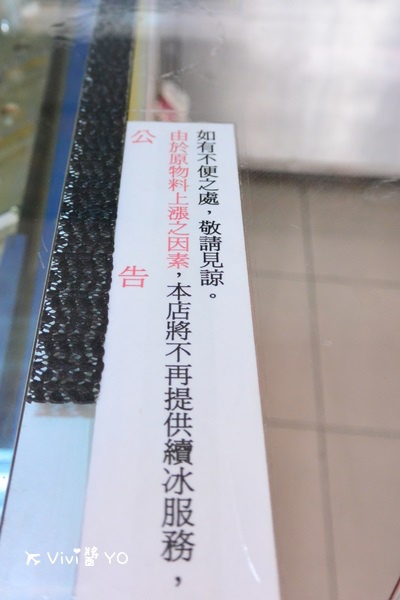 公告
由於原物料上漲之因素，本店將不再提供續冰服務，
如有不便之處，敬請見諒。
Vivi醬YO